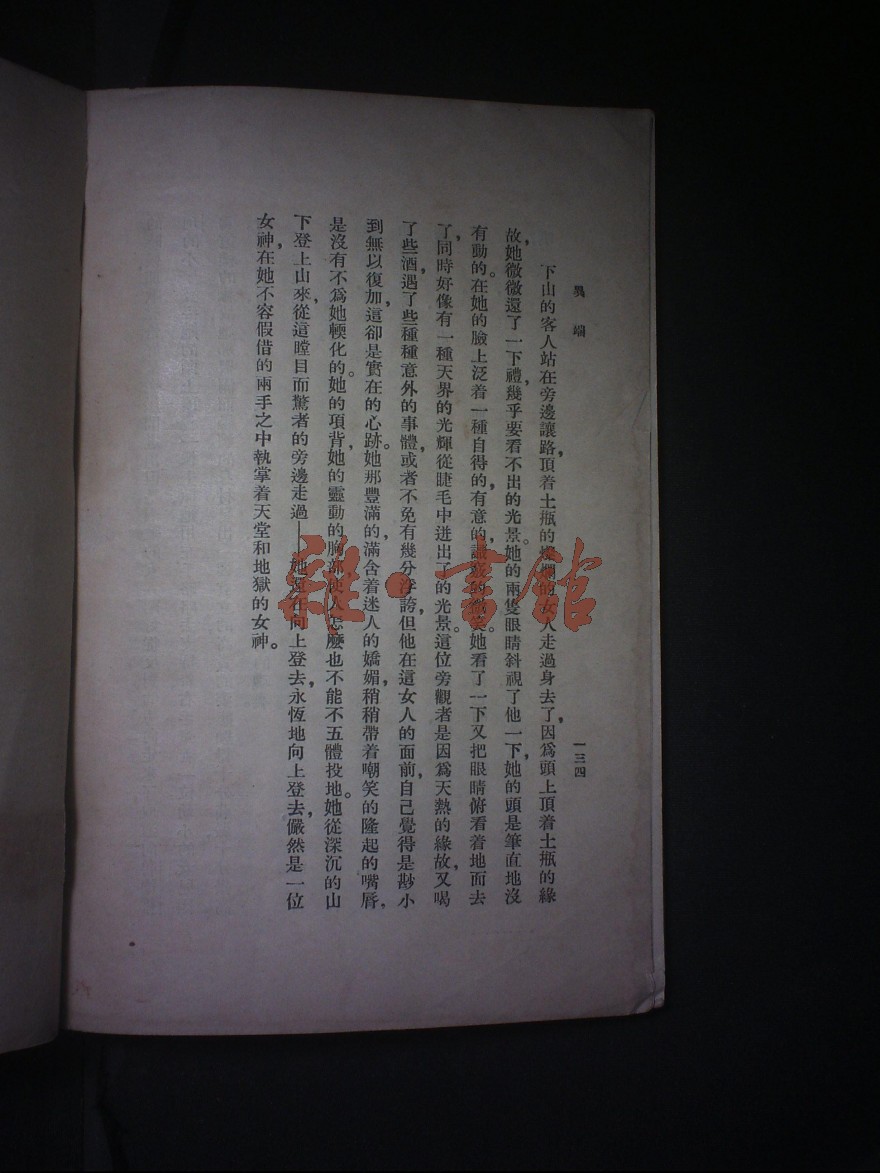 異端
一三四
下山的客人站在旁邊讓路，頂着土瓶的燦爛的女人走過身去了，因爲頭上頂着土瓶的緣
故，她微微還了一下禮，幾乎要看不出的光景。她的兩隻眼睛斜視了他一下，她的頭是筆直地沒
有動的。在她的臉上泛着一種自得的，有意的，譏嘲的微笑。她看了一下又把眼睛俯看着地面去
了，同時好像有一種天界的光輝從睫毛中迸出了的光景。這位旁觀者是因爲天熱的緣故，又喝
了些酒，遇了些種種意外的事體，或者不免有幾分浮誇，但他在這女人的面前，自己覺得是尠小
到無以復加，這卻是實在的心跡。她那豐滿的，滿含着迷人的嬌媚，稍稍帶着嘲笑的隆起的嘴唇，
是沒有不爲她輭化的。她的項背，她的靈動的胸部使人怎麼也不能不五體投地。她從深沉的山
下登上山來，從這瞠目而驚者的旁邊走過——她還在向上登去，永恆地向上登去，儼然是一位
女神，在她不容假借的兩手之中執掌着天堂和地獄的女神。
雜·書館